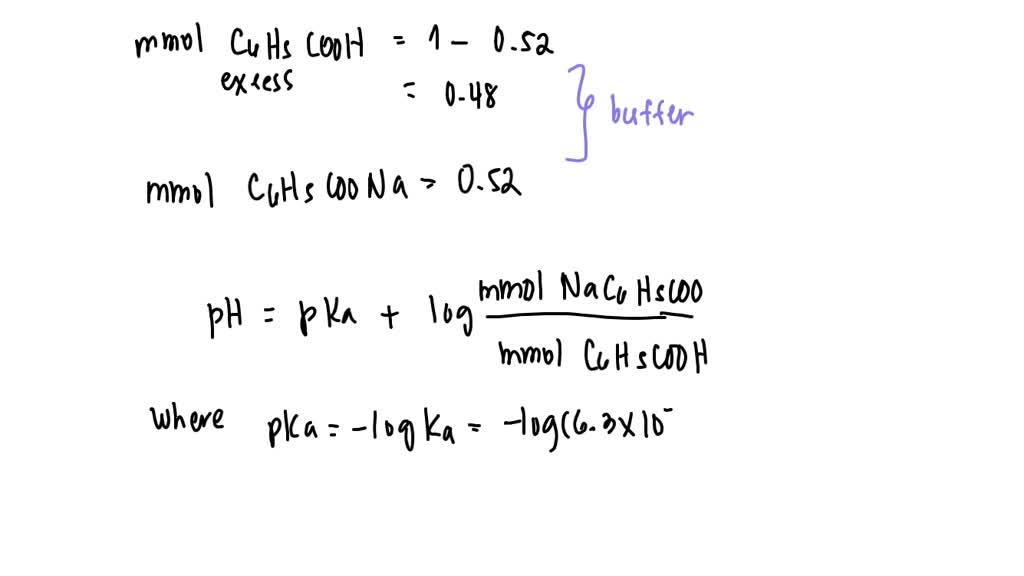 mmol C6H5 COOH = 1 - 0.52
excess = 0.48
buffer
mmol C6H5COONa = 0.52
pH = pKa + log mmol NaC6H5COO
mmol C6H5COOH
where pKa = -log Ka = -log(6.3x10-